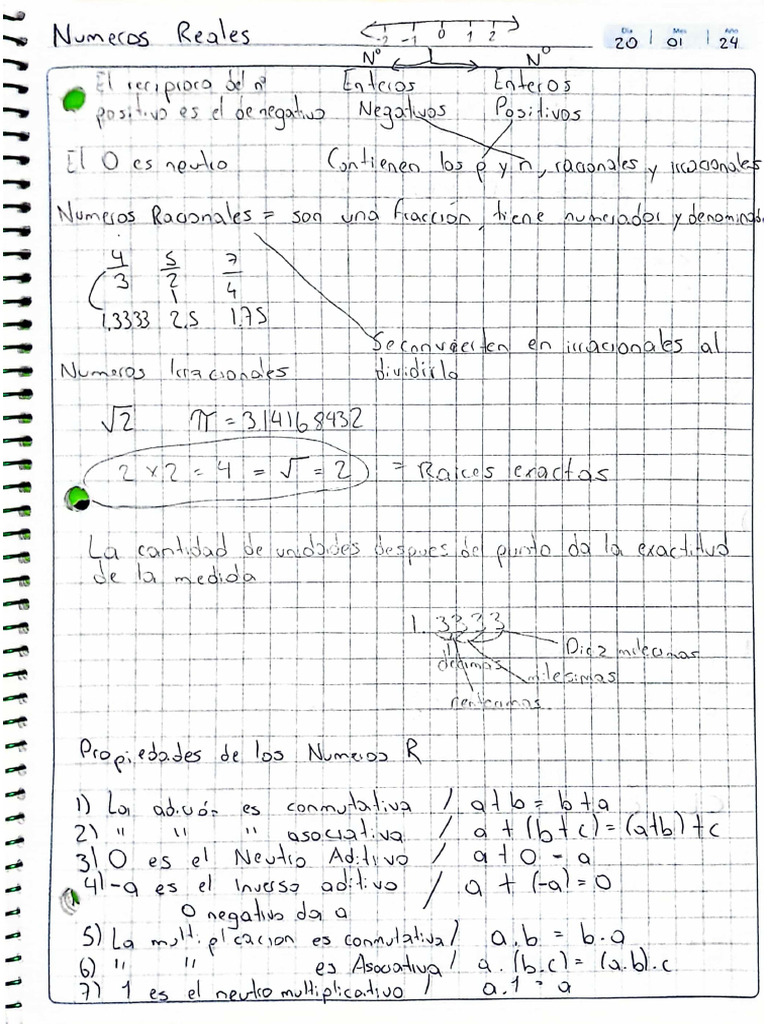 Numeros Reales
-2 -1 0 1 2
Dia Mes Año
20 01 24
Nº Nº
El reciproco del nº Enteros Enteros
positivo es el de negativo Negativos Positivos
El 0 es neutro Contienen los p y n, racionales y irracionales
Numeros Racionales = son una fracción, tiene numerador y denominad
4/3 5/2 7/4
1.3333 2.5 1.75
Se convierten en irracionales al
Numeros Irracionales dividirlo
√2 π = 3.14168432
2 x 2 = 4 = √ = 2 = Raices exactas
La cantidad de unidades despues del punto da la exactitud
de la medida
1.3333
Diez milecimas
decimas milesimas
centecimas
Propiedades de los Numeros R
1) La adición es conmutativa / a+b = b+a
2) " " " asociativa / a + (b+c) = (a+b)+c
3) 0 es el Neutro Aditivo / a+0 - a
4) -a es el Inverso aditivo / a + (-a) = 0
0 negativo da a
5) La multiplicacion es conmutativa / a.b = b.a
6) " " es Asociativa / a.(b.c) = (a.b).c
7) 1 es el neutro multiplicativo / a.1 = a